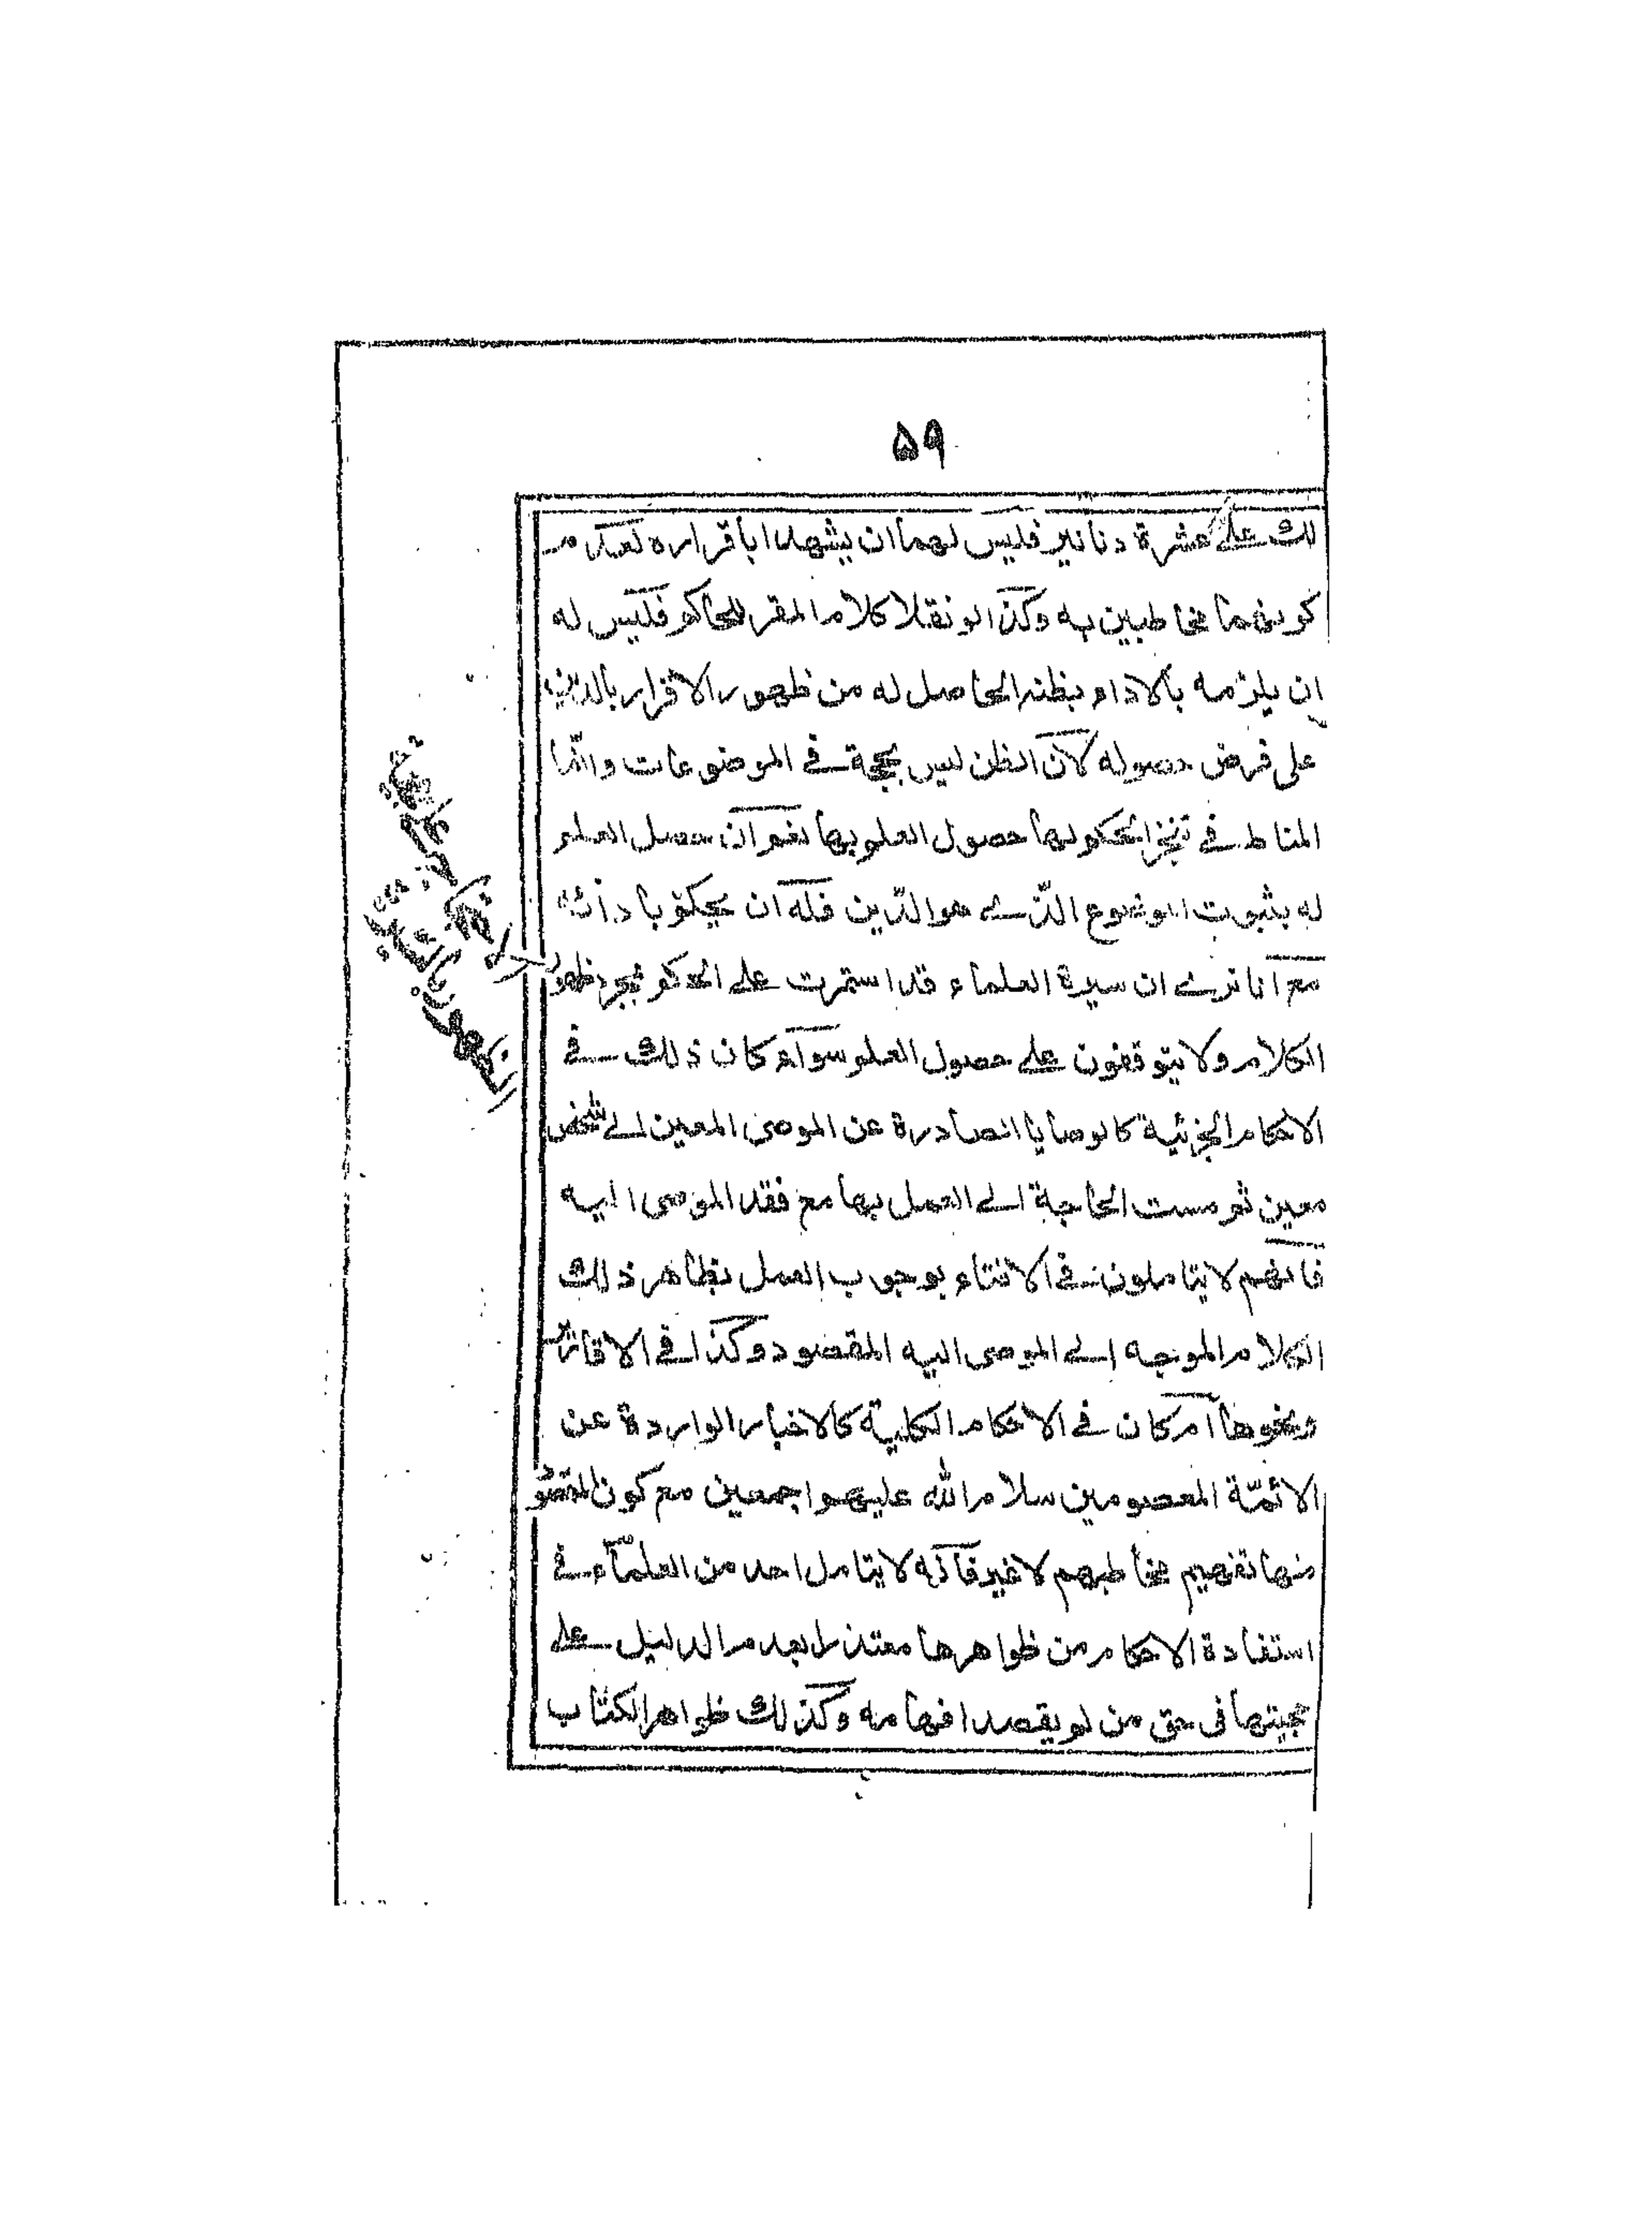 ۵۹
لك على عشرة دنانير فليس لهما ان يشهدا باقراره لعدم
كونهما مخاطبين به وكذا لو نقلا كلام المقر للحاكم فليس له
ان يلزمه بالاداء بظنه الحاصل له من ظهور الاقرار بالدين
على فرض حصوله لان الظن ليس بحجة في الموضوعات وانما
المناط في تنجز الحكم لها حصول العلم بها نعم ان حصل العلم
له بثبوت الموضوع الذي هو الدين فله ان يحكم بادائه
مع انا نرى ان سيرة العلماء قد استمرت على الحكم بمجرد ظهور
الكلام ولا يتوقفون على حصول العلم سواء كان ذلك في
الاحكام الجزئية كالوصايا الصادرة عن الموصى المعين الى شخص
معين ثم مست الحاجة الى العمل بها مع فقد الموصى اليه
فانهم لا يتاملون في الافتاء بوجوب العمل بظاهر ذلك
الكلام الموجه الى الموصى اليه المقصود وكذا في الاقارير
ونحوها ام كان في الاحكام الكلية كالاخبار الواردة عن
الائمّة المعصومين سلام الله عليهم اجمعين مع كون المقصو
منها تفهيم مخاطبهم لا غير فانه لا يتامل احد من العلماء في
استفادة الاحكام من ظواهرها معتذرا بعدم الدليل على
حجيتها فى حق من لم يقصد افهامه وكذلك ظواهر الكتاب